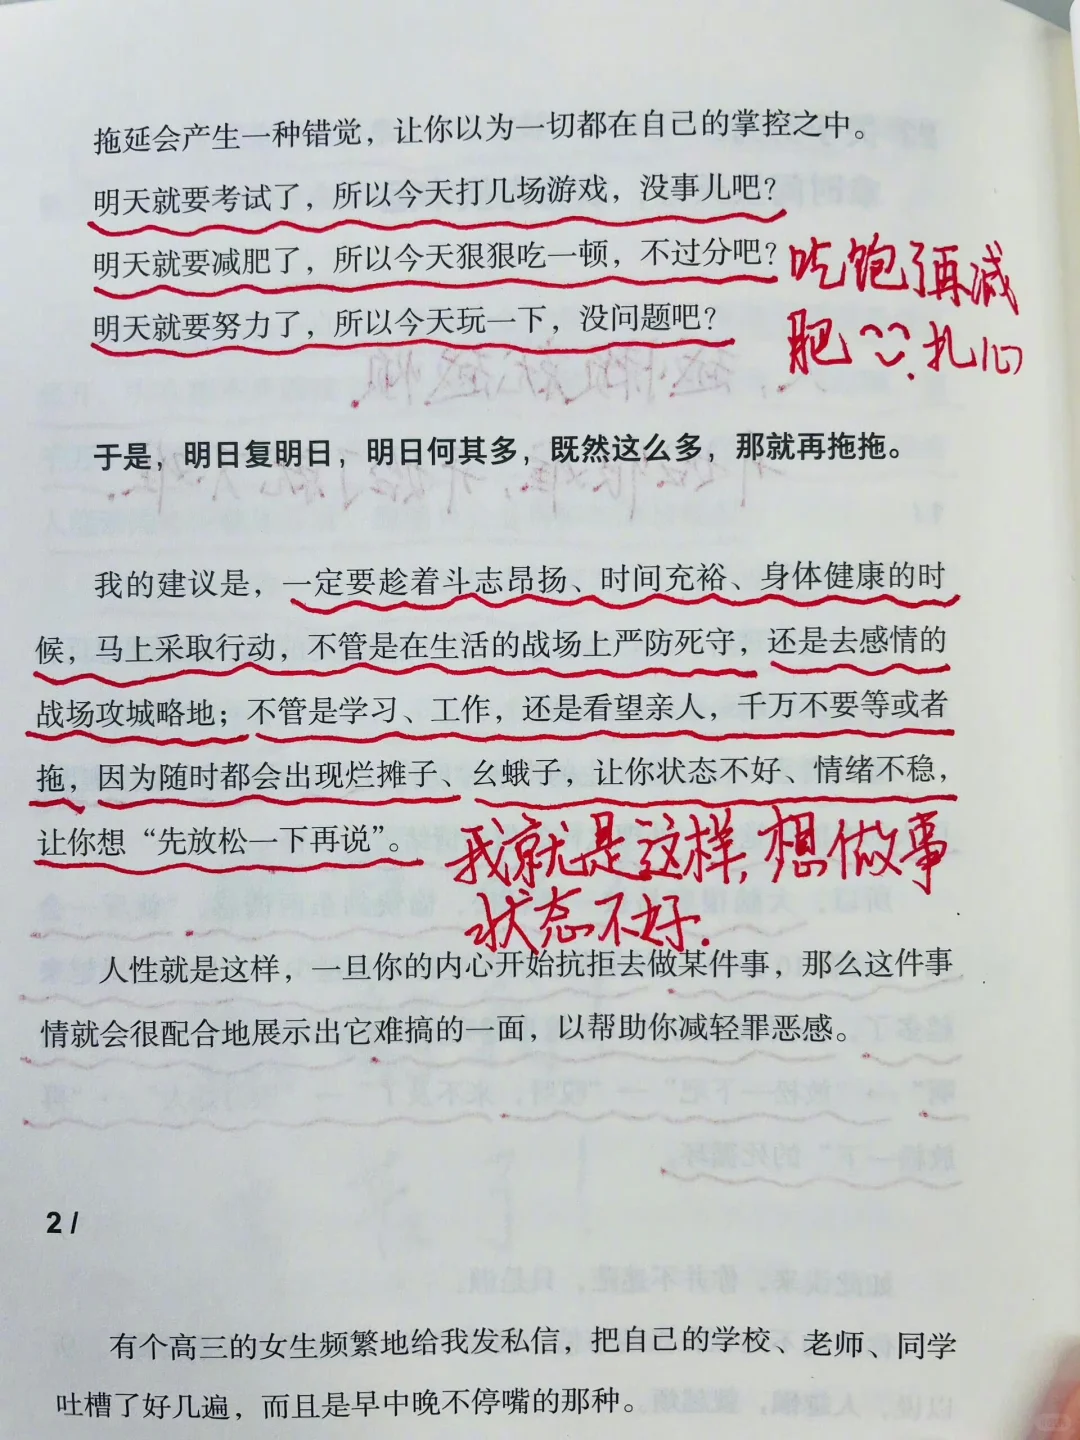 拖延会产生一种错觉，让你以为一切都在自己的掌控之中。
明天就要考试了，所以今天打几场游戏，没事儿吧？
明天就要减肥了，所以今天狠狠吃一顿，不过分吧？
吃饱了再减
明天就要努力了，所以今天玩一下，没问题吧？
肥 扎心
于是，明日复明日，明日何其多，既然这么多，那就再拖拖。
我的建议是，一定要趁着斗志昂扬、时间充裕、身体健康的时
候，马上采取行动，不管是在生活的战场上严防死守，还是去感情的
战场攻城略地；不管是学习、工作，还是看望亲人，千万不要等或者
拖，因为随时都会出现烂摊子、幺蛾子，让你状态不好、情绪不稳，
让你想“先放松一下再说”。
我就是这样，想做事
状态不好.
人性就是这样，一旦你的内心开始抗拒去做某件事，那么这件事
情就会很配合地展示出它难搞的一面，以帮助你减轻罪恶感。
2 /
有个高三的女生频繁地给我发私信，把自己的学校、老师、同学
吐槽了好几遍，而且是早中晚不停嘴的那种。